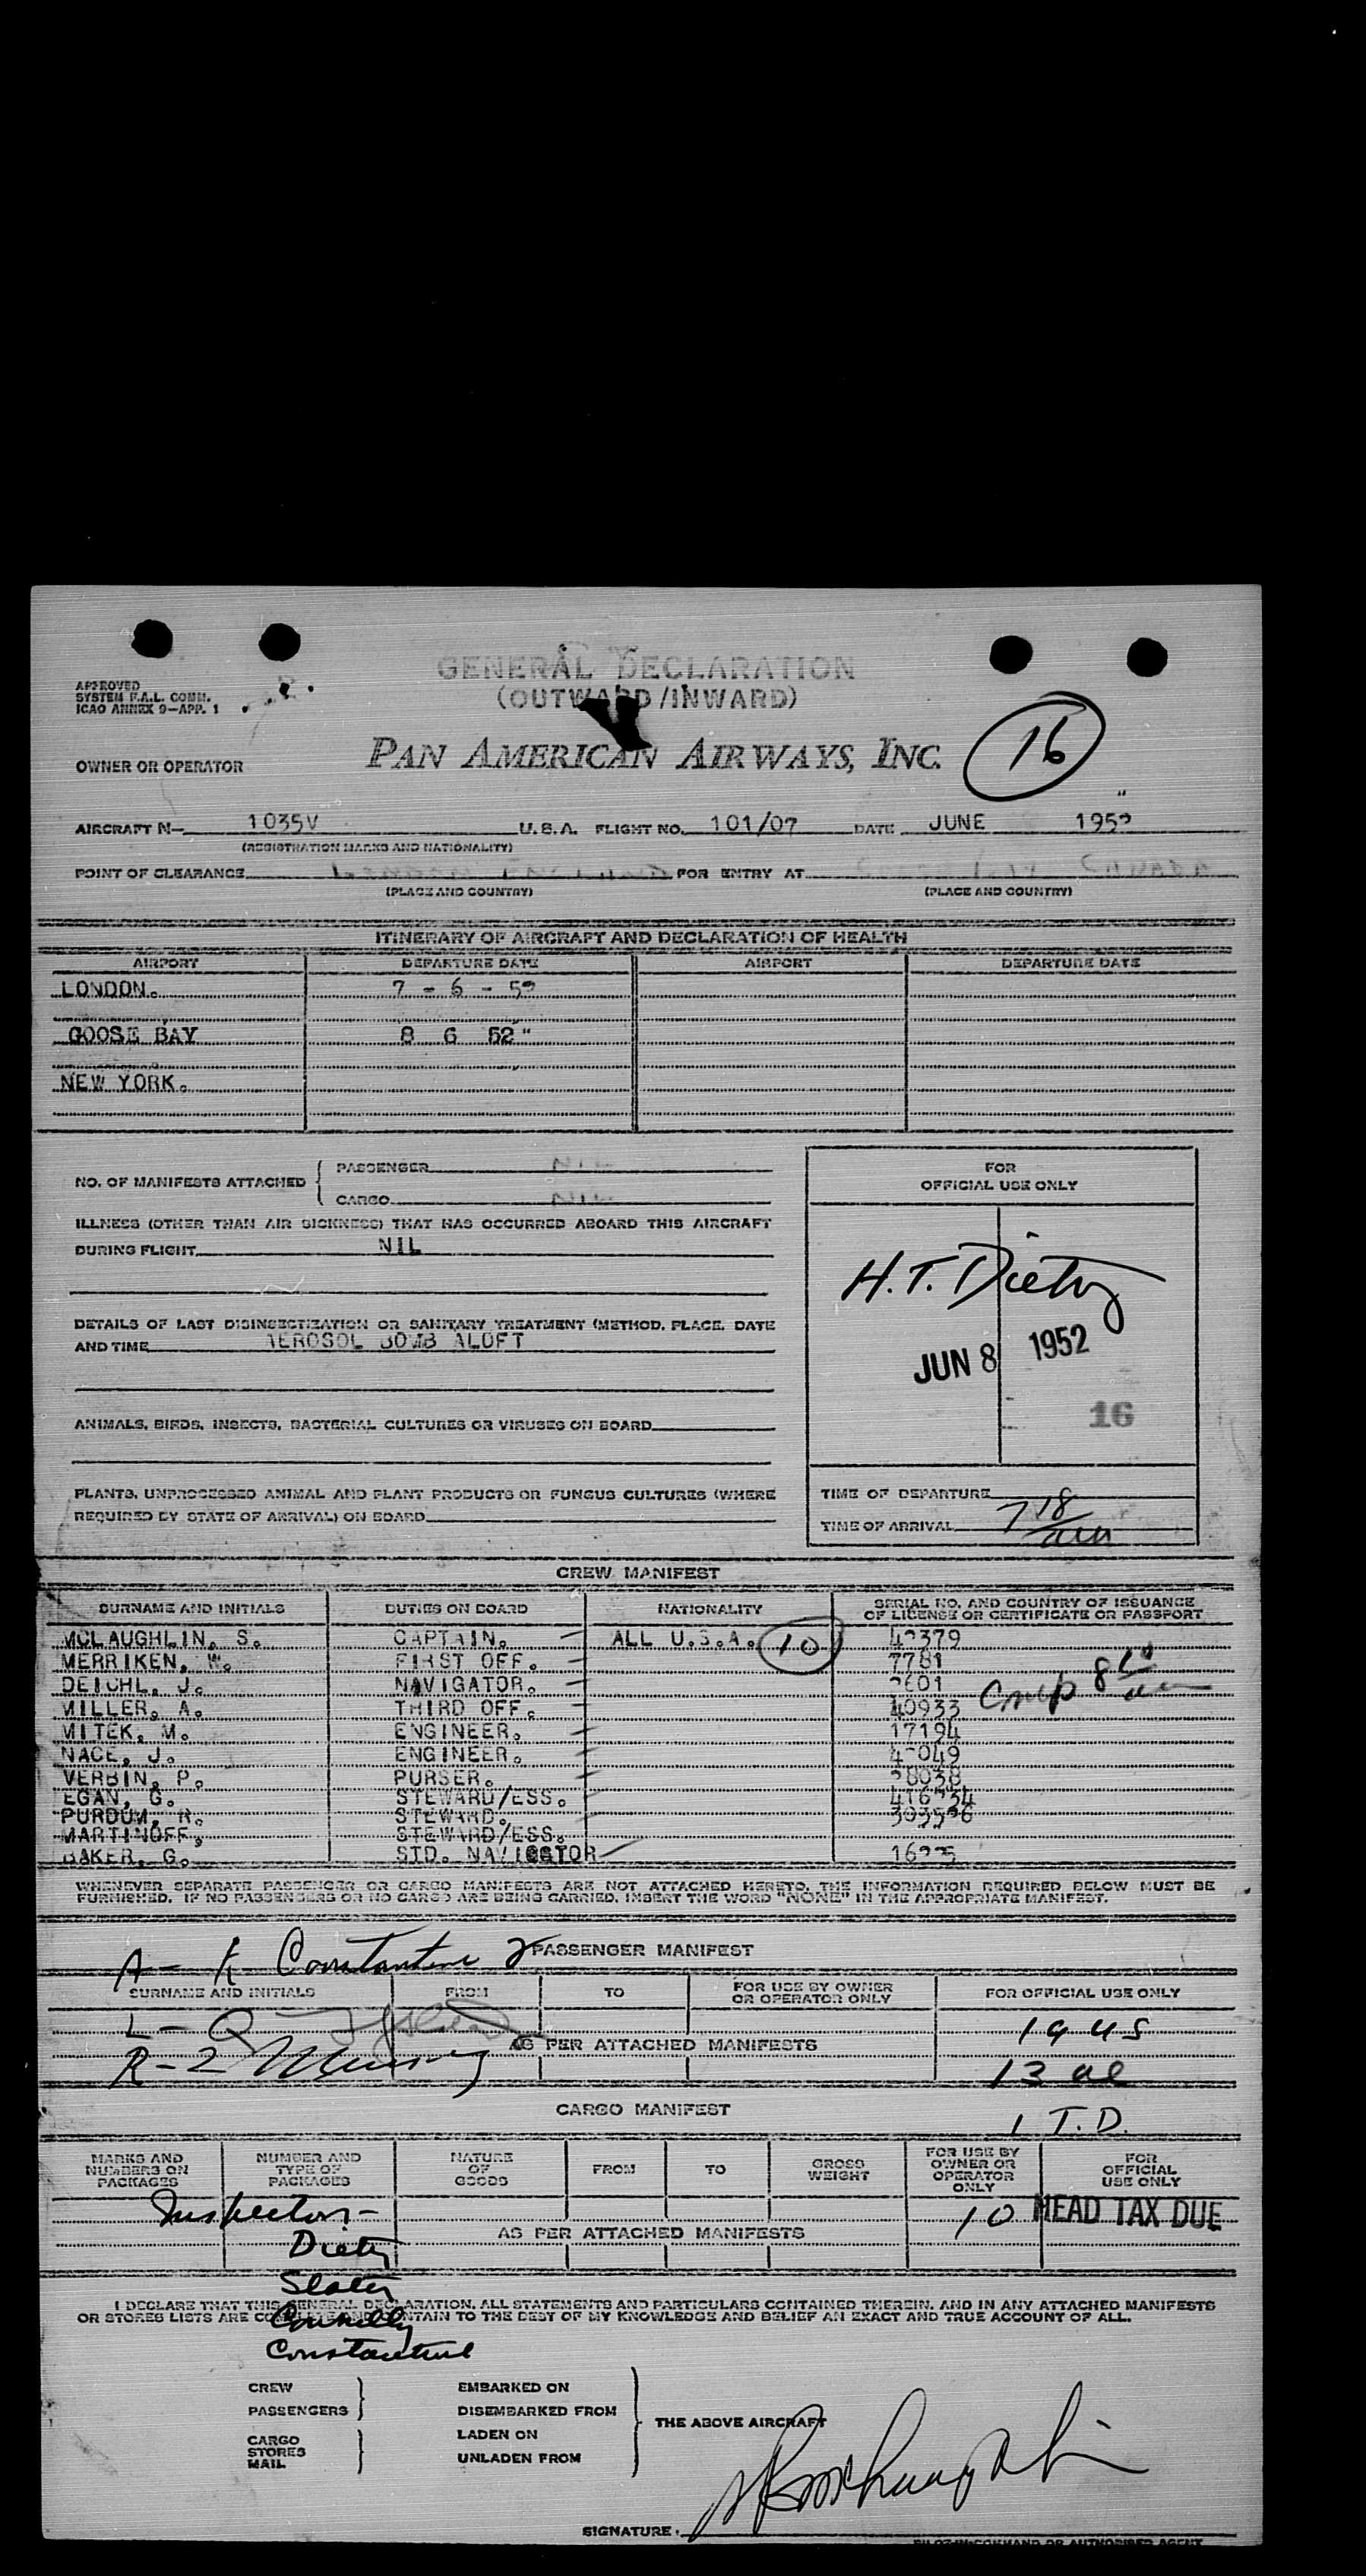 GENERAL DECLARATION
(OUTWARD/INWARD)
APPROVED
SYSTEM F.A.L. COMM.
ICAO ANNEX 9—APP. 1
16
OWNER OR OPERATOR PAN AMERICAN AIRWAYS, INC.
AIRCRAFT N— 1035V U.S.A. FLIGHT NO. 101/07 DATE JUNE 1952
(REGISTRATION MARKS AND NATIONALITY)
POINT OF CLEARANCE FOR ENTRY AT
(PLACE AND COUNTRY) (PLACE AND COUNTRY)
ITINERARY OF AIRCRAFT AND DECLARATION OF HEALTH
AIRPORT DEPARTURE DATE AIRPORT DEPARTURE DATE
LONDON. 7 - 6 - 52
GOOSE BAY 8 6 52"
NEW YORK.
NO. OF MANIFESTS ATTACHED PASSENGER NIL
CARGO NIL
ILLNESS (OTHER THAN AIR SICKNESS) THAT HAS OCCURRED ABOARD THIS AIRCRAFT
DURING FLIGHT NIL
DETAILS OF LAST DISINSECTIZATION OR SANITARY TREATMENT (METHOD, PLACE, DATE
AND TIME AEROSOL BOMB ALOFT
ANIMALS, BIRDS, INSECTS, BACTERIAL CULTURES OR VIRUSES ON BOARD
PLANTS, UNPROCESSED ANIMAL AND PLANT PRODUCTS OR FUNGUS CULTURES (WHERE
REQUIRED BY STATE OF ARRIVAL) ON BOARD
FOR
OFFICIAL USE ONLY
H.T. Dietz
JUN 8 1952
16
TIME OF DEPARTURE
TIME OF ARRIVAL 7 18 am
CREW MANIFEST
SURNAME AND INITIALS DUTIES ON BOARD NATIONALITY SERIAL NO. AND COUNTRY OF ISSUANCE
OF LICENSE OR CERTIFICATE OR PASSPORT
MCLAUGHLIN, S. CAPTAIN. ALL U.S.A. 10 42379
MERRIKEN, W. FIRST OFF. 7781
DEICHL, J. NAVIGATOR. 2601
MILLER, A. THIRD OFF. 40933 Comp 8 am
MITEK, M. ENGINEER. 17194
NACE, J. ENGINEER.
VERBIN, P. PURSER. 28038
EGAN, G. STEWARD/ESS.
PURDUM, R. STEWARD.
MARTINOFF, STEWARD/ESS.
BAKER, G. STD. NAVIGATOR
WHENEVER SEPARATE PASSENGER OR CARGO MANIFESTS ARE NOT ATTACHED HERETO, THE INFORMATION REQUIRED BELOW MUST BE
FURNISHED. IF NO PASSENGERS OR NO CARGO ARE BEING CARRIED, INSERT THE WORD "NONE" IN THE APPROPRIATE MANIFEST.
A - K Constantine
PASSENGER MANIFEST
SURNAME AND INITIALS FROM TO FOR USE BY OWNER
OR OPERATOR ONLY FOR OFFICIAL USE ONLY
L - Q
19 US
AS PER ATTACHED MANIFESTS
R - Z
13 al
CARGO MANIFEST
1 T.D.
MARKS AND
NUMBERS ON
PACKAGES NUMBER AND
TYPE OF
PACKAGES NATURE
OF
GOODS FROM TO GROSS
WEIGHT FOR USE BY
OWNER OR
OPERATOR
ONLY FOR
OFFICIAL
USE ONLY
Inspectors -
10 HEAD TAX DUE
AS PER ATTACHED MANIFESTS
Dietz
Slater
I DECLARE THAT THIS GENERAL DECLARATION, ALL STATEMENTS AND PARTICULARS CONTAINED THEREIN, AND IN ANY ATTACHED MANIFESTS
OR STORES LISTS ARE COMPLETE AND CONTAIN TO THE BEST OF MY KNOWLEDGE AND BELIEF AN EXACT AND TRUE ACCOUNT OF ALL.
Connelly
Constantine
CREW
PASSENGERS
EMBARKED ON
DISEMBARKED FROM
THE ABOVE AIRCRAFT
CARGO
STORES
MAIL
LADEN ON
UNLADEN FROM
SIGNATURE.
PILOT-IN-COMMAND OR AUTHORISED AGENT